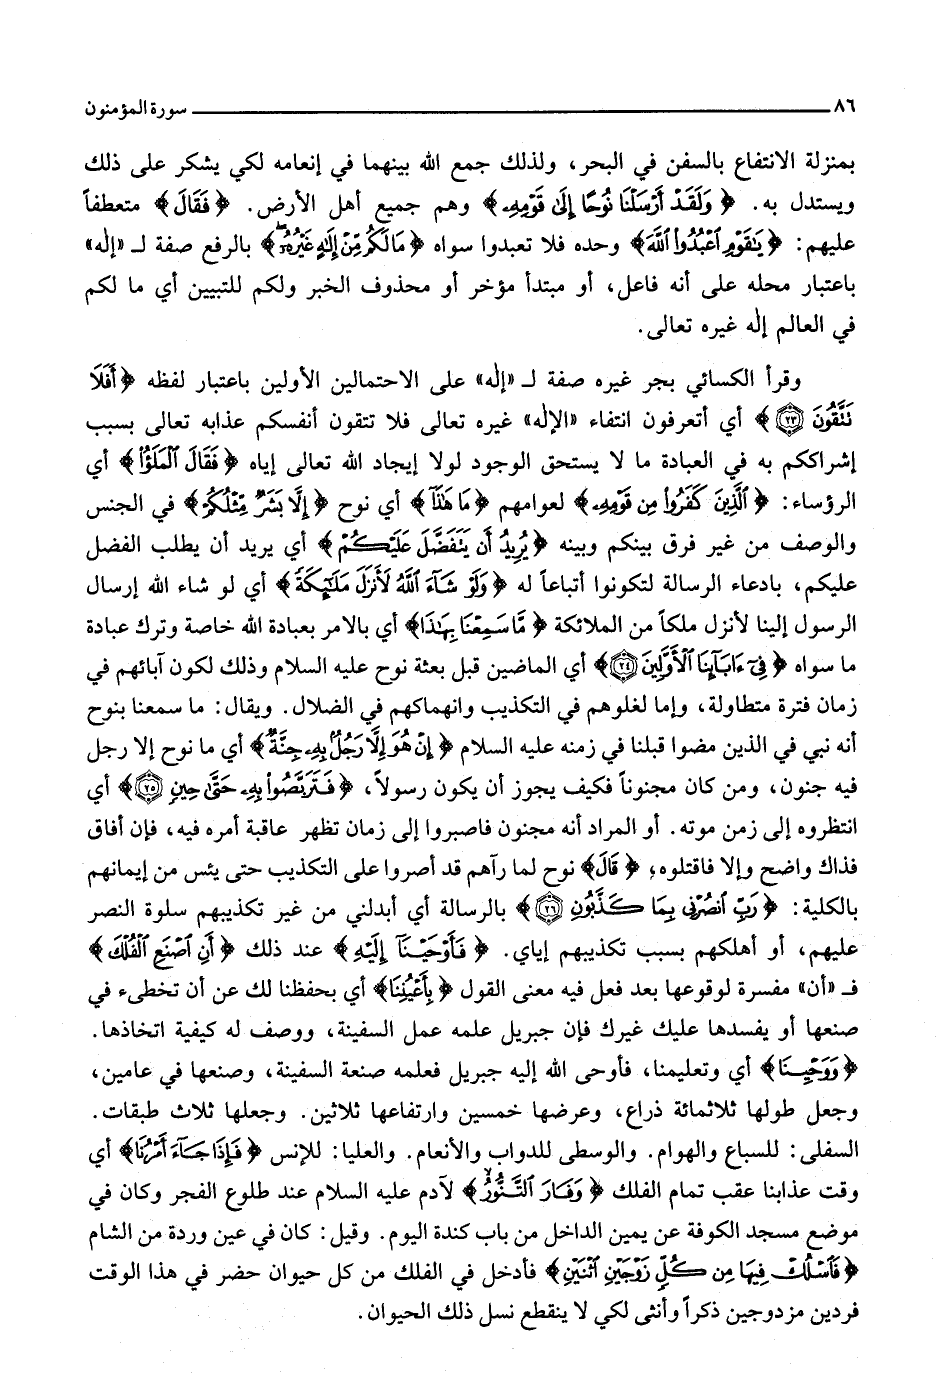 ٨٦ سورة المؤمنون
بمنزلة الانتفاع بالسفن في البحر، ولذلك جمع الله بينهما في إنعامه لكي يشكر على ذلك
ويستدل به. ﴿وَلَقَدْ أَرْسَلْنَا نُوحًا إِلَىٰ قَوْمِهِۦ﴾ وهم جميع أهل الأرض. ﴿فَقَالَ﴾ متعطفاً
عليهم: ﴿يَٰقَوْمِ ٱعْبُدُوا۟ ٱللَّهَ﴾ وحده فلا تعبدوا سواه ﴿مَا لَكُم مِّنْ إِلَٰهٍ غَيْرُهُۥٓ﴾ بالرفع صفة لـ «إله»
باعتبار محله على أنه فاعل، أو مبتدأ مؤخر أو محذوف الخبر ولكم للتبيين أي ما لكم
في العالم إلٰه غيره تعالى.
وقرأ الكسائي بجر غيره صفة لـ «إلٰه» على الاحتمالين الأولين باعتبار لفظه ﴿أَفَلَا
تَتَّقُونَ ٢٣﴾ أي أتعرفون انتفاء «الإلٰه» غيره تعالى فلا تتقون أنفسكم عذابه تعالى بسبب
إشراككم به في العبادة ما لا يستحق الوجود لولا إيجاد الله تعالى إياه ﴿فَقَالَ ٱلْمَلَؤُا۟﴾ أي
الرؤساء: ﴿ٱلَّذِينَ كَفَرُوا۟ مِن قَوْمِهِۦ﴾ لعوامهم ﴿مَا هَٰذَآ﴾ أي نوح ﴿إِلَّا بَشَرٌ مِّثْلُكُمْ﴾ في الجنس
والوصف من غير فرق بينكم وبينه ﴿يُرِيدُ أَن يَتَفَضَّلَ عَلَيْكُمْ﴾ أي يريد أن يطلب الفضل
عليكم، بادعاء الرسالة لتكونوا أتباعاً له ﴿وَلَوْ شَآءَ ٱللَّهُ لَأَنزَلَ مَلَٰٓئِكَةً﴾ أي لو شاء الله إرسال
الرسول إلينا لأنزل ملكاً من الملائكة ﴿مَّا سَمِعْنَا بِهَٰذَا﴾ أي بالامر بعبادة الله خاصة وترك عبادة
ما سواه ﴿فِىٓ ءَابَآئِنَا ٱلْأَوَّلِينَ ٢٤﴾ أي الماضين قبل بعثة نوح عليه السلام وذلك لكون آبائهم في
زمان فترة متطاولة، وإما لغلوهم في التكذيب وانهماكهم في الضلال. ويقال: ما سمعنا بنوح
أنه نبي في الذين مضوا قبلنا في زمنه عليه السلام ﴿إِنْ هُوَ إِلَّا رَجُلٌۢ بِهِۦ جِنَّةٌ﴾ أي ما نوح إلا رجل
فيه جنون، ومن كان مجنوناً فكيف يجوز أن يكون رسولاً، ﴿فَتَرَبَّصُوا۟ بِهِۦ حَتَّىٰ حِينٍ ٢٥﴾ أي
انتظروه إلى زمن موته. أو المراد أنه مجنون فاصبروا إلى زمان تظهر عاقبة أمره فيه، فإن أفاق
فذاك واضح وإلا فاقتلوه؛ ﴿قَالَ﴾ نوح لما رآهم قد أصروا على التكذيب حتى يئس من إيمانهم
بالكلية: ﴿رَبِّ ٱنصُرْنِى بِمَا كَذَّبُونِ ٢٦﴾ بالرسالة أي أبدلني من غير تكذيبهم سلوة النصر
عليهم، أو أهلكهم بسبب تكذيبهم إياي. ﴿فَأَوْحَيْنَآ إِلَيْهِ﴾ عند ذلك ﴿أَنِ ٱصْنَعِ ٱلْفُلْكَ﴾
فـ «أن» مفسرة لوقوعها بعد فعل فيه معنى القول ﴿بِأَعْيُنِنَا﴾ أي بحفظنا لك عن أن تخطىء في
صنعها أو يفسدها عليك غيرك فإن جبريل علمه عمل السفينة، ووصف له كيفية اتخاذها.
﴿وَوَحْيِنَا﴾ أي وتعليمنا، فأوحى الله إليه جبريل فعلمه صنعة السفينة، وصنعها في عامين،
وجعل طولها ثلاثمائة ذراع، وعرضها خمسين وارتفاعها ثلاثين. وجعلها ثلاث طبقات.
السفلى: للسباع والهوام. والوسطى للدواب والأنعام. والعليا: للإنس ﴿فَإِذَا جَآءَ أَمْرُنَا﴾ أي
وقت عذابنا عقب تمام الفلك ﴿وَفَارَ ٱلتَّنُّورُ﴾ لآدم عليه السلام عند طلوع الفجر وكان في
موضع مسجد الكوفة عن يمين الداخل من باب كندة اليوم. وقيل: كان في عين وردة من الشام
﴿فَٱسْلُكْ فِيهَا مِن كُلٍّ زَوْجَيْنِ ٱثْنَيْنِ﴾ فأدخل في الفلك من كل حيوان حضر في هذا الوقت
فردين مزدوجين ذكراً وأنثى لكي لا ينقطع نسل ذلك الحيوان.